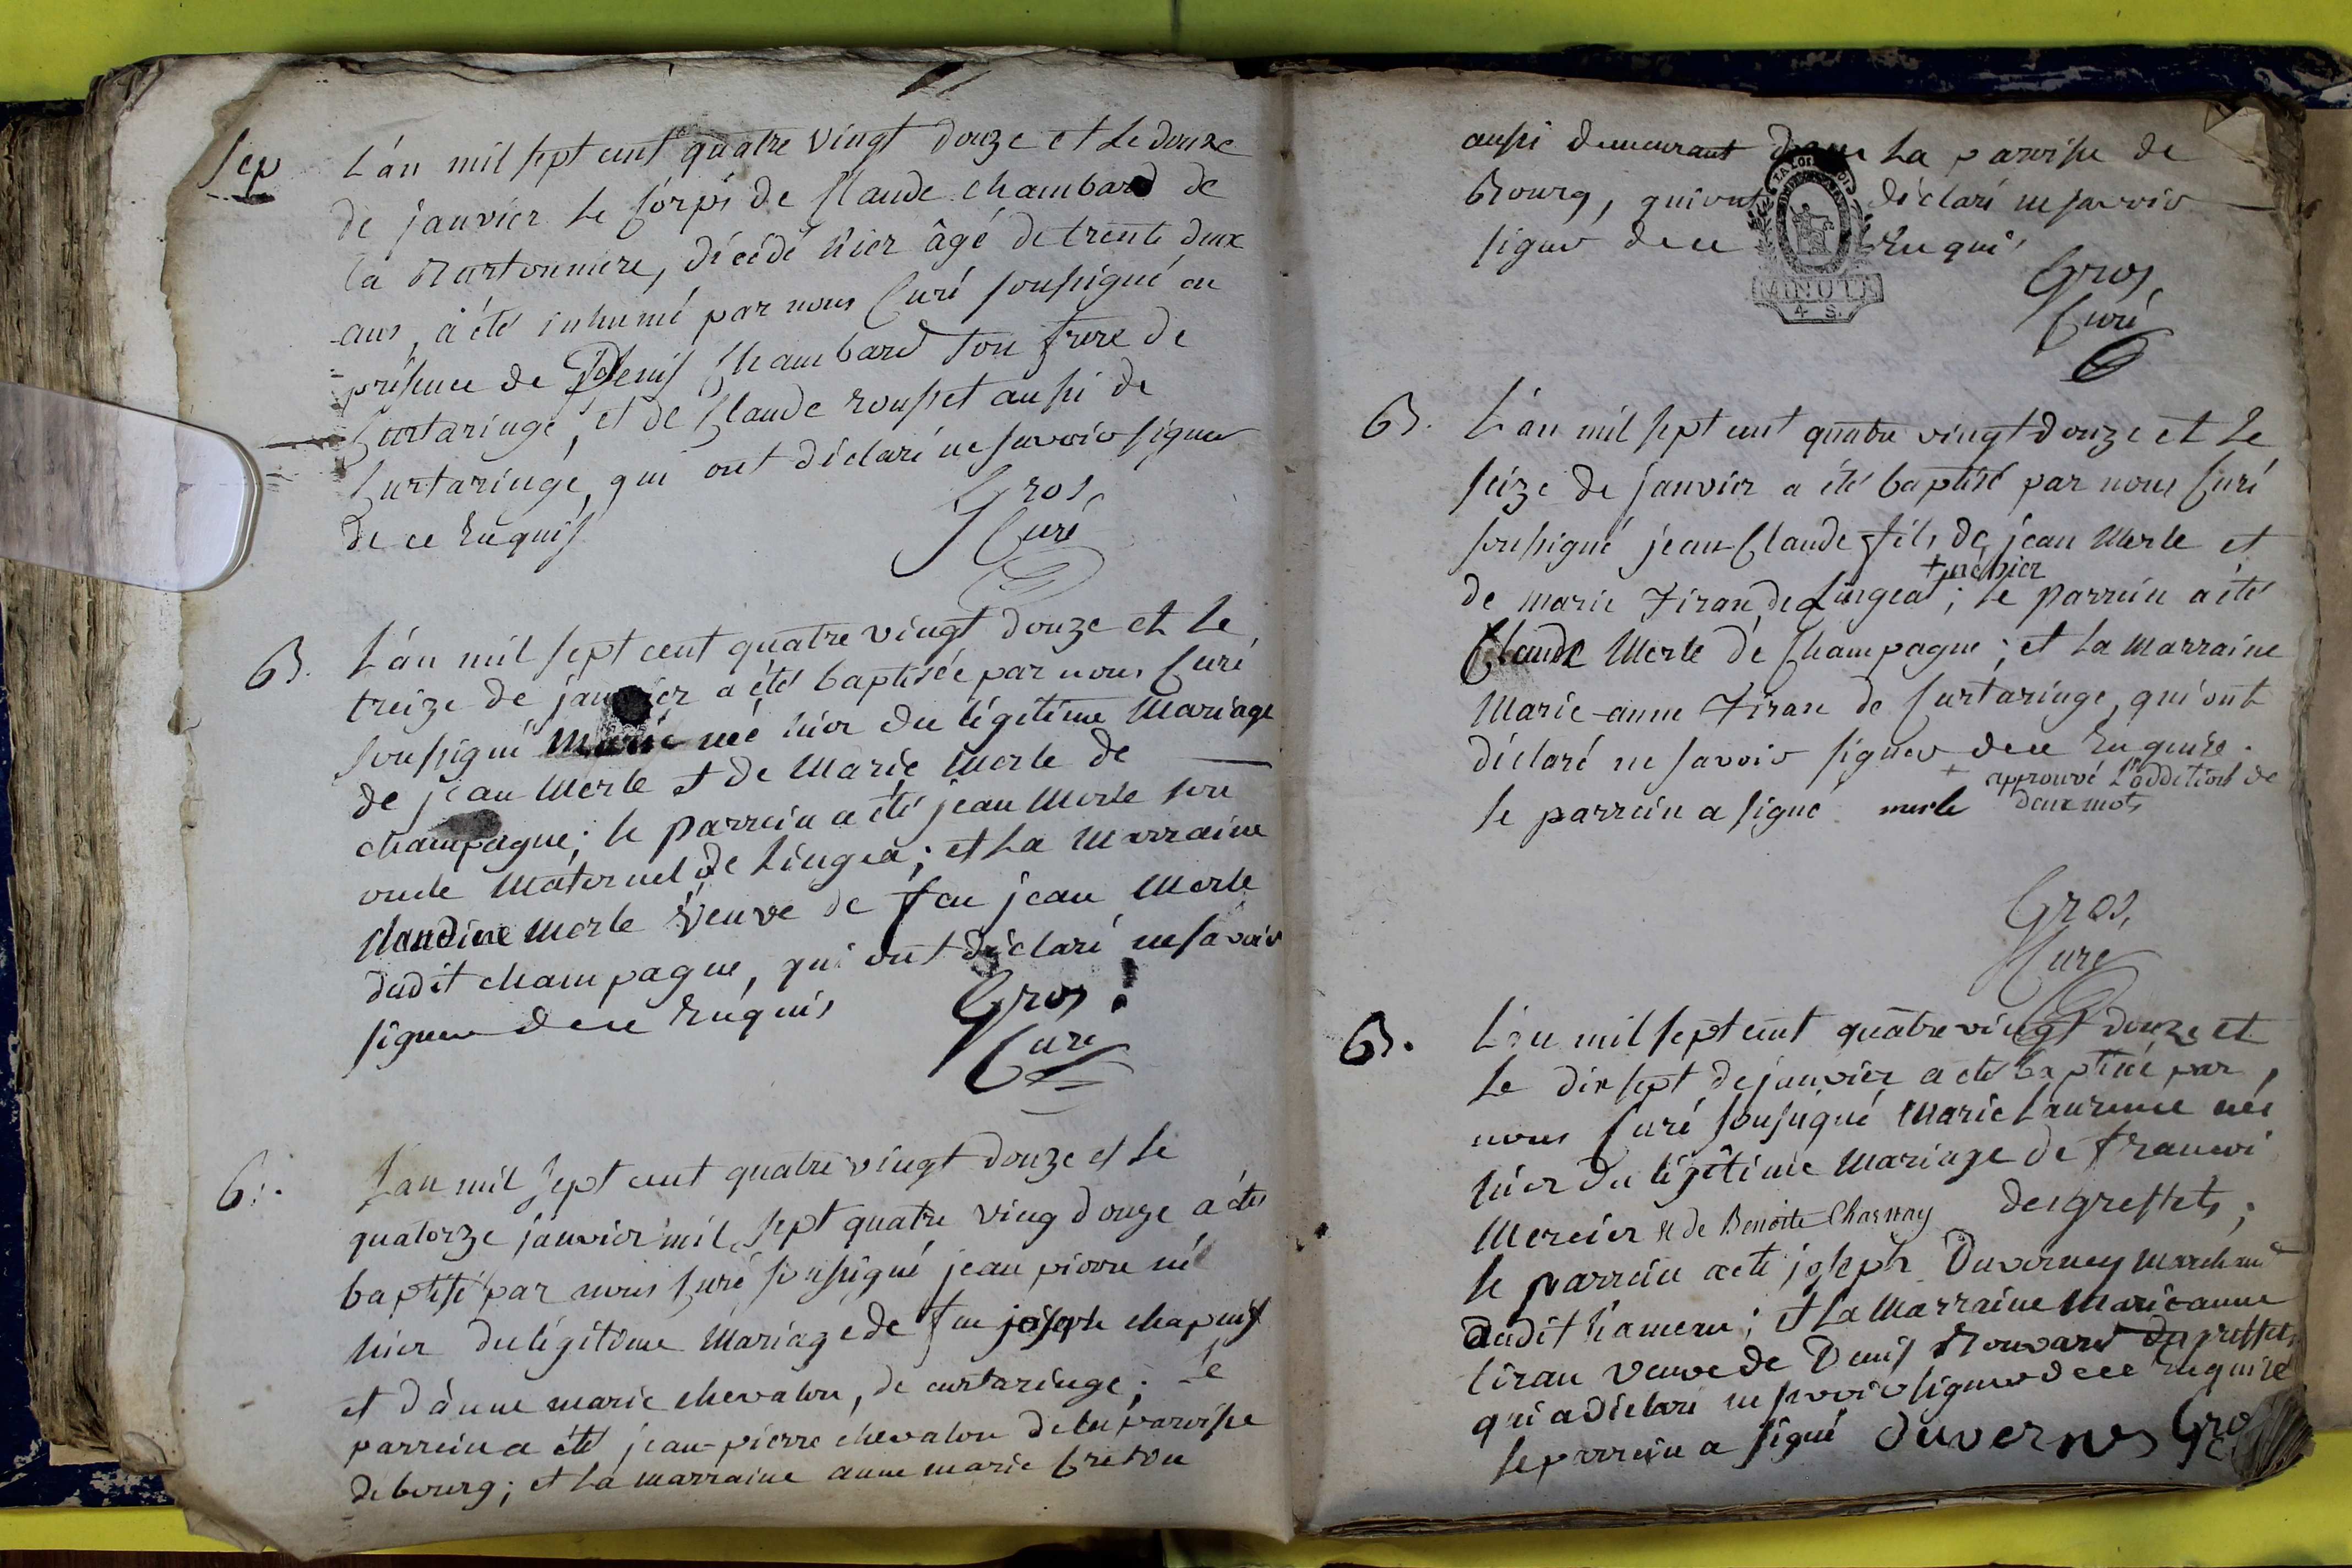 Sep
L'an mil sept cent quatre vingt douze et le douze
de janvier le Corps de Claude Chambard de
la Nartonniere, décédé hier âgé de trente deux
ans, a été inhumé par nous Curé soussigné en
présence de Denis Chambard son frere de
Curtaringe, et de Claude rousset aussi de
Curtaringe, qui ont déclaré ne savoir signer
de ce Requis
Gros,
Curé
B.
L'an mil sept cent quatre vingt douze et le
treize de janvier a été baptisée par nous Curé
soussigné Marie née hier du légitime Mariage
de jean Merle et de Marie Merle de
champagne; le parrein a été jean Merle son
oncle Maternel de Lingea; et la Marraine
Claudine Merle Veuve de feu jean Merle
dudit champagne, qui ont déclaré ne savoir
signer de ce Requis
Gros
Curé
B.
L'an mil sept cent quatre vingt douze et le
quatorze janvier mil sept quatre ving douze a été
baptisé par nous Curé soussigné jean pierre né
hier du légitime Mariage de feu joseph chapuis
et d'anne marie chevalon, de curtaringe; le
parrein a été jean-pierre chevalon de la paroisse
de bourg; et la marraine anne marie Creton
aussi demeurant dans la paroisse de
Bourg, qui ont déclaré ne savoir
signer de ce Requis
LA LOI
MINUTE
4 S.
Gros,
Curé
B.
L'an mil sept cent quatre vingt douze et le
seize de janvier a été baptisé par nous Curé
soussigné jean-Claude fils de jean Merle et
+ né hier
de marie Tiran de Lingea; le parrein a été
Claude Merle de Champagne; et la Marraine
Marie-anne Tiran de Curtaringe, qui ont
déclaré ne savoir signer de ce Requise.
+ approuvé l'addition de
le parrein a signé merle deux mots
Gros,
Curé
B.
L'an mil sept cent quatre vingt douze et
le dix sept de janvier a été baptisée par
nous Curé soussigné Marie Laurence née
hier du légitime Mariage de francoi
Mercier et de Benoite Charnay des gressets;
le parrein a été joseph Duverney Marchand
dudit hameau; et la Marraine Marieanne
tiran veuve de Denis Nouvard des gressets
qui a déclaré ne savoir signer de ce Requise
le parrein a signé Duverney Gros